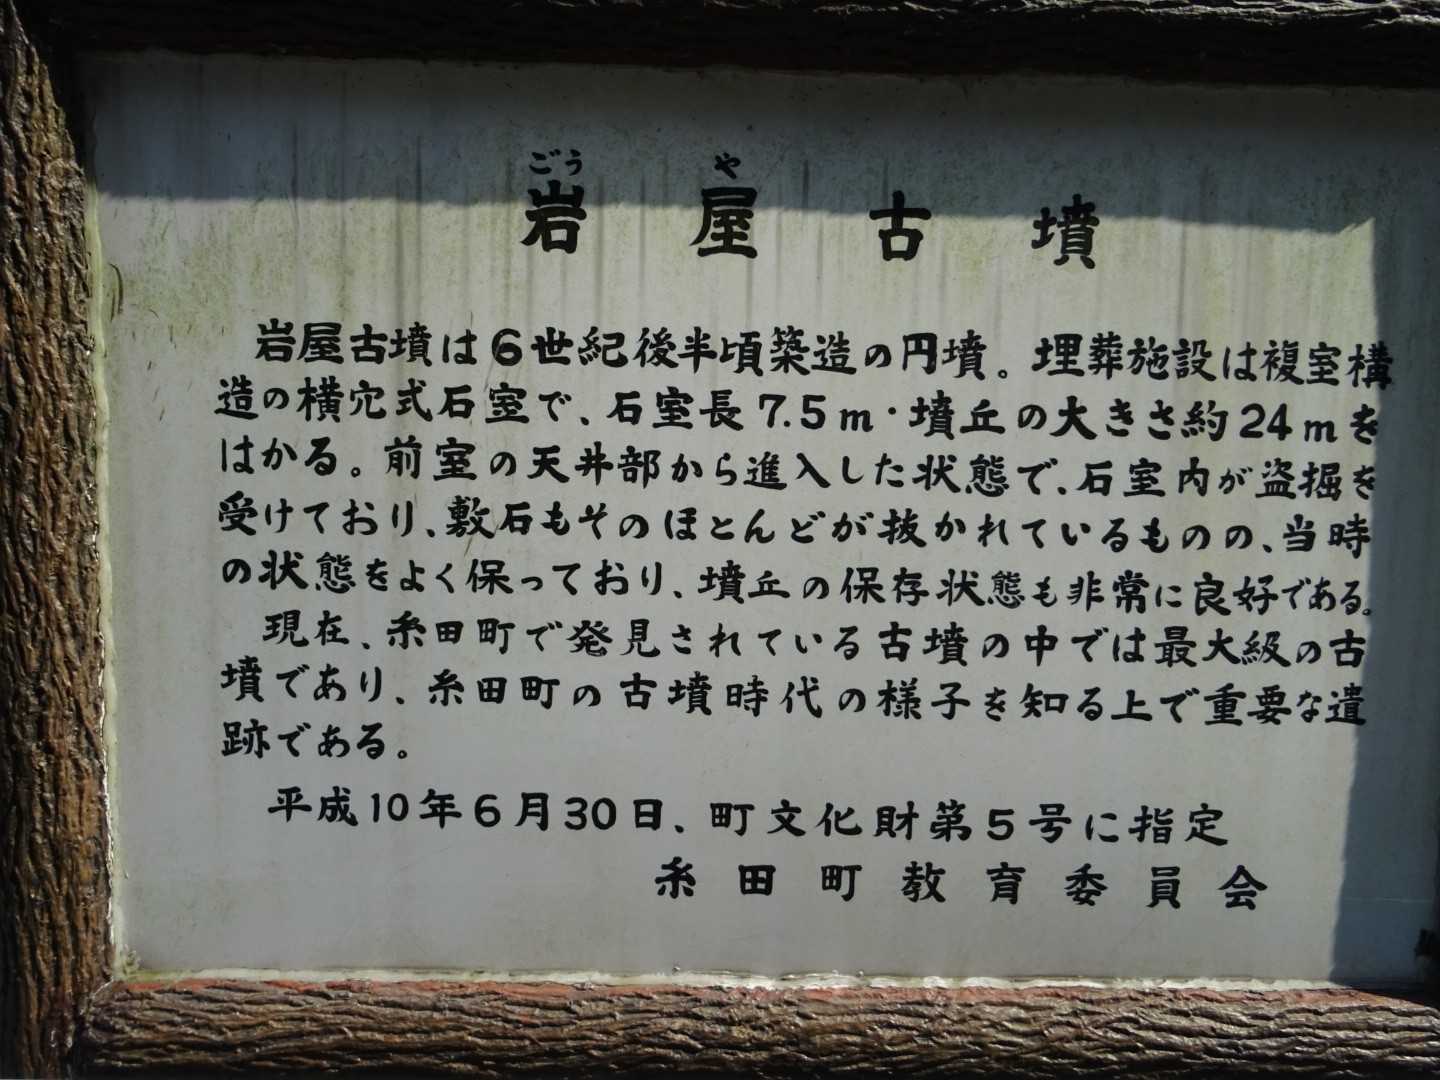 ごう や
岩屋古墳
岩屋古墳は6世紀後半頃築造の円墳。埋葬施設は複室構
造の横穴式石室で、石室長7.5m・墳丘の大きさ約24mを
はかる。前室の天井部から進入した状態で、石室内が盗掘を
受けており、敷石もそのほとんどが抜かれているものの、当時
の状態をよく保っており、墳丘の保存状態も非常に良好である。
現在、糸田町で発見されている古墳の中では最大級の古
墳であり、糸田町の古墳時代の様子を知る上で重要な遺
跡である。
平成10年6月30日、町文化財第5号に指定
糸田町教育委員会